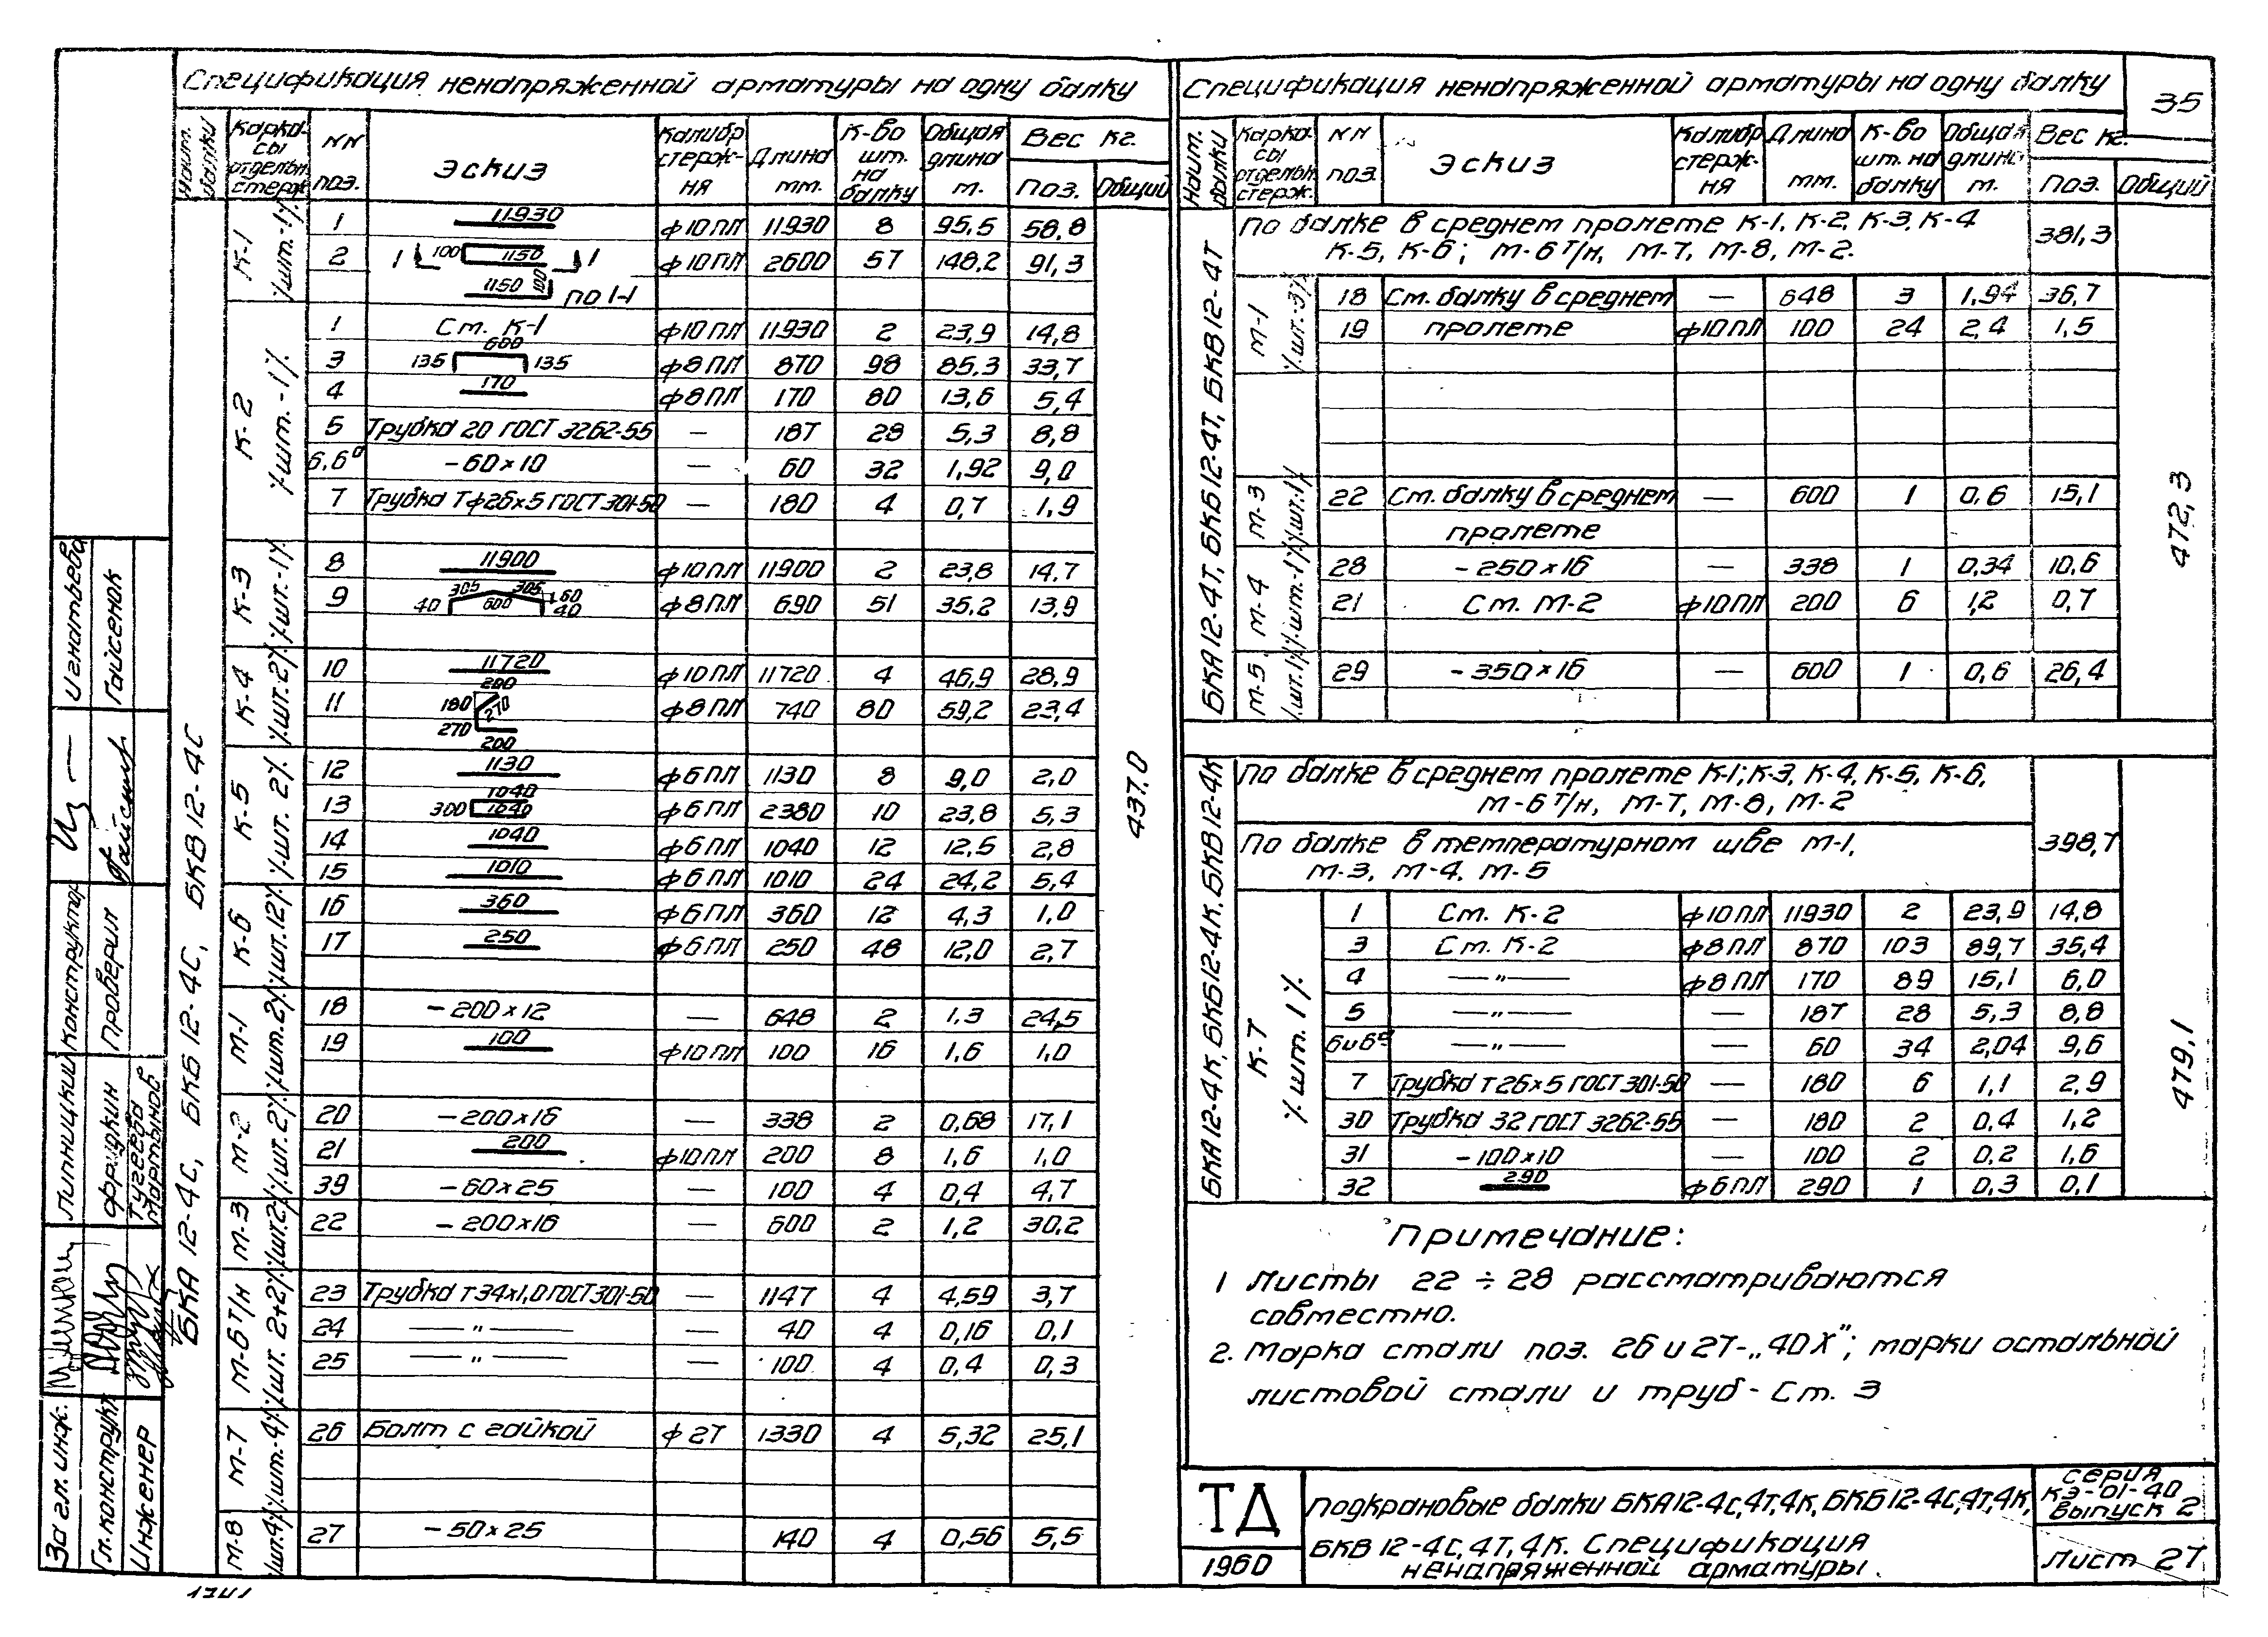 Спецификация ненапряженной арматуры на одну балку
Наим. балки | Каркасы отдельн. стерж. | NN поз. | Эскиз | Калибр стержня | Длина мм. | К-во шт. на балку | Общая длина м. | Вес кг. Поз. | Общий
БКА 12-4С, БКБ 12-4С, БКВ 12-4С
437,0
К-1 /шт.-1/
1 | 11930 | ф10ПЛ | 11930 | 8 | 95,5 | 58,8
2 | 1 100 1150 1 | ф10ПЛ | 2600 | 57 | 148,2 | 91,3
1150 100 по 1-1
К-2 /шт.-1/
1 | Ст. К-1 | ф10ПЛ | 11930 | 2 | 23,9 | 14,8
3 | 135 600 135 | ф8ПЛ | 870 | 98 | 85,3 | 33,7
4 | 170 | ф8ПЛ | 170 | 80 | 13,6 | 5,4
5 | Трубка 20 ГОСТ 3262-55 | — | 187 | 28 | 5,3 | 8,8
6,6а | -60×10 | — | 60 | 32 | 1,92 | 9,0
7 | Трубка Тф26×5 ГОСТ 301-50 | — | 180 | 4 | 0,7 | 1,9
К-3 /шт.-1/
8 | 11900 | ф10ПЛ | 11900 | 2 | 23,8 | 14,7
9 | 40 305 600 305 60 40 | ф8ПЛ | 690 | 51 | 35,2 | 13,9
К-4 /шт.2/
10 | 11720 | ф10ПЛ | 11720 | 4 | 46,9 | 28,9
11 | 200 180 270 270 200 | ф8ПЛ | 740 | 80 | 59,2 | 23,4
К-5 /шт. 2/
12 | 1130 | ф6ПЛ | 1130 | 8 | 9,0 | 2,0
13 | 1040 300 1040 | ф6ПЛ | 2380 | 10 | 23,8 | 5,3
14 | 1040 | ф6ПЛ | 1040 | 12 | 12,5 | 2,8
15 | 1010 | ф6ПЛ | 1010 | 24 | 24,2 | 5,4
К-6 /шт.12/
16 | 360 | ф6ПЛ | 360 | 12 | 4,3 | 1,0
17 | 250 | ф6ПЛ | 250 | 48 | 12,0 | 2,7
М-1 /шт.2/
18 | -200×12 | — | 648 | 2 | 1,3 | 24,5
19 | 100 | ф10ПЛ | 100 | 16 | 1,6 | 1,0
М-2 /шт.2/
20 | -200×16 | — | 338 | 2 | 0,68 | 17,1
21 | 200 | ф10ПЛ | 200 | 8 | 1,6 | 1,0
39 | -60×25 | — | 100 | 4 | 0,4 | 4,7
М-3 /шт.2/
22 | -200×16 | — | 600 | 2 | 1,2 | 30,2
М-6т/н /шт. 2+2/
23 | Трубка т34×1,0 ГОСТ 301-50 | — | 1147 | 4 | 4,59 | 3,7
24 | —"— | — | 40 | 4 | 0,16 | 0,1
25 | —"— | — | 100 | 4 | 0,4 | 0,3
М-7 /шт.-4/
26 | Болт с гайкой | ф27 | 1330 | 4 | 5,32 | 25,1
М-8 /шт.4/
27 | -50×25 | 140 | 4 | 0,56 | 5,5
Спецификация ненапряженной арматуры на одну балку
35
Наим. балки | Каркасы отдельн. стерж. | NN поз. | Эскиз | Калибр стержня | Длина мм. | К-во шт. на балку | Общая длина м. | Вес кг. Поз. | Общий
БКА12-4Т, БКБ12-4Т, БКВ12-4Т
472,3
По балке в среднем пролете К-1, К-2, К-3, К-4
К-5, К-6; М-6т/н, М-7, М-8, М-2. | 381,3
М-1 /шт.-3/
18 | Ст. балку в среднем | — | 648 | 3 | 1,94 | 36,7
19 | пролете | ф10ПЛ | 100 | 24 | 2,4 | 1,5
М-3 /шт.-1/
22 | Ст. балку в среднем | — | 600 | 1 | 0,6 | 15,1
пролете
М-4 /шт.-1/
28 | -250×16 | — | 338 | 1 | 0,34 | 10,6
21 | Ст. М-2 | ф10ПЛ | 200 | 6 | 1,2 | 0,7
М-5 /шт.1/
29 | -350×16 | — | 600 | 1 | 0,6 | 26,4
БКА12-4К, БКБ12-4К, БКВ12-4К
479,1
По балке в среднем пролете К-1; К-3, К-4, К-5, К-6,
М-6т/н, М-7, М-8, М-2
По балке в температурном шве М-1, | 398,7
М-3, М-4, М-5
К-7 /шт. 1/
1 | Ст. К-2 | ф10ПЛ | 11930 | 2 | 23,9 | 14,8
3 | Ст. К-2 | ф8ПЛ | 870 | 103 | 89,7 | 35,4
4 | —"— | ф8ПЛ | 170 | 89 | 15,1 | 6,0
5 | —"— | — | 187 | 28 | 5,3 | 8,8
6и6а | —"— | — | 60 | 34 | 2,04 | 9,6
7 | Трубка т26×5 ГОСТ 301-50 | — | 180 | 6 | 1,1 | 2,9
30 | Трубка 32 ГОСТ 3262-55 | — | 180 | 2 | 0,4 | 1,2
31 | -100×10 | — | 100 | 2 | 0,2 | 1,6
32 | 290 | ф6ПЛ | 290 | 1 | 0,3 | 0,1
Примечание:
1 Листы 22 ÷ 28 рассматриваются
совместно.
2. Марка стали поз. 26 и 27-„40Х"; марки остальной
листовой стали и труб - Ст. 3
ТД
1960
Подкрановые балки БКА12-4С,4Т,4К, БКБ12-4С,4Т,4К,
БКВ 12-4С,4Т,4К. Спецификация
ненапряженной арматуры.
серия
КЭ-01-40
выпуск 2
Лист 27
За гл. инж. Липницкий Конструктор Игнатьева
Гл. конструкт Фридкин Проверил Гайсенок
Инженер Тугеева
Мартынов
1741